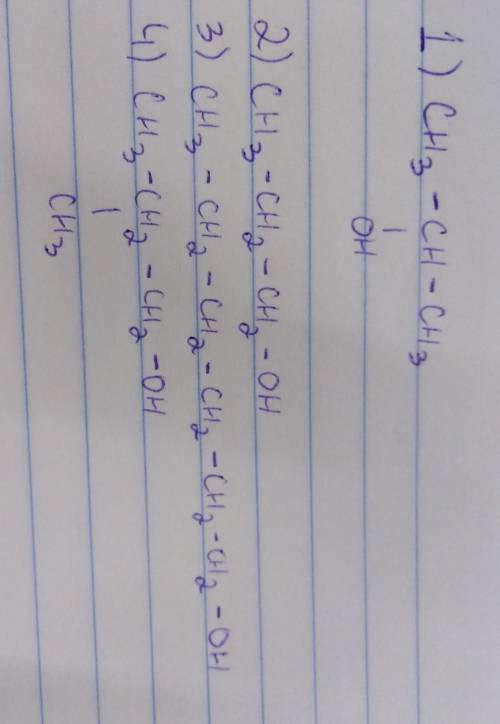 1) CH3 - CH - CH3
|
OH
2) CH3 - CH2 - CH2 - OH
3) CH3 - CH2 - CH2 - CH2 - CH2 - CH2 - OH
4) CH3 - CH2 - CH2 - OH
|
CH3